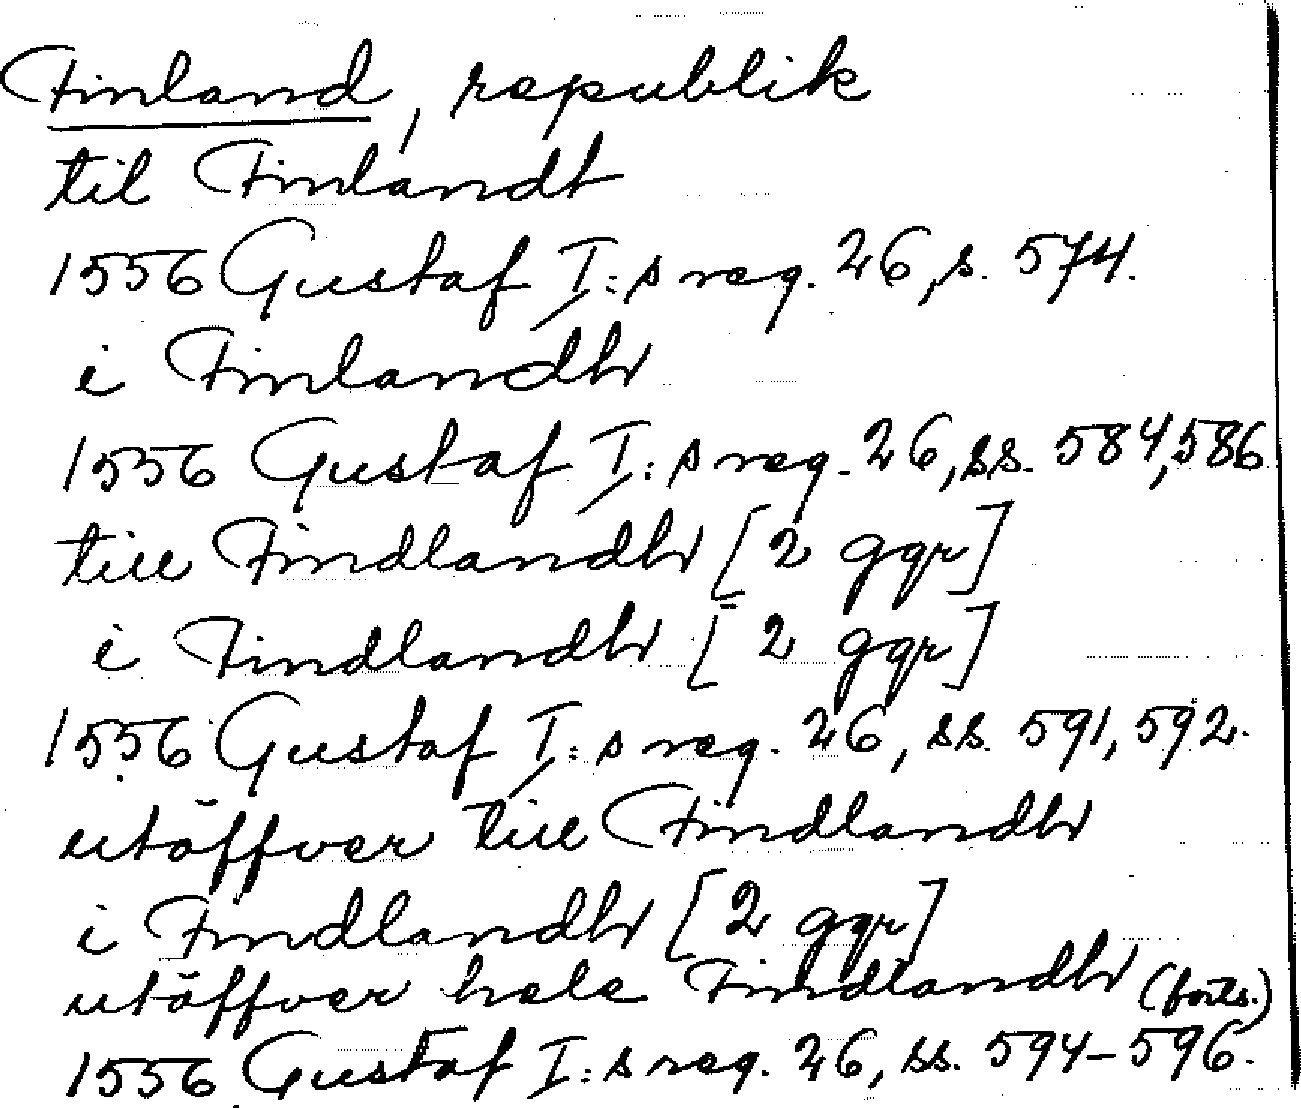 Finland, republik
til Finlandt
1556 Gustaf I:s reg. 26, s. 574.
i Finlandh
1556 Gustaf I:s reg. 26, ss. 584, 586
till Findlandh [2 ggr]
i Findlandh [2 ggr]
1556 Gustaf I:s reg. 26, ss. 591, 592.
utöffver till Findlandh
i Findlandh [2 ggr]
utöffver hele Findlandh (forts.)
1556 Gustaf I:s reg. 26, ss. 594-596.